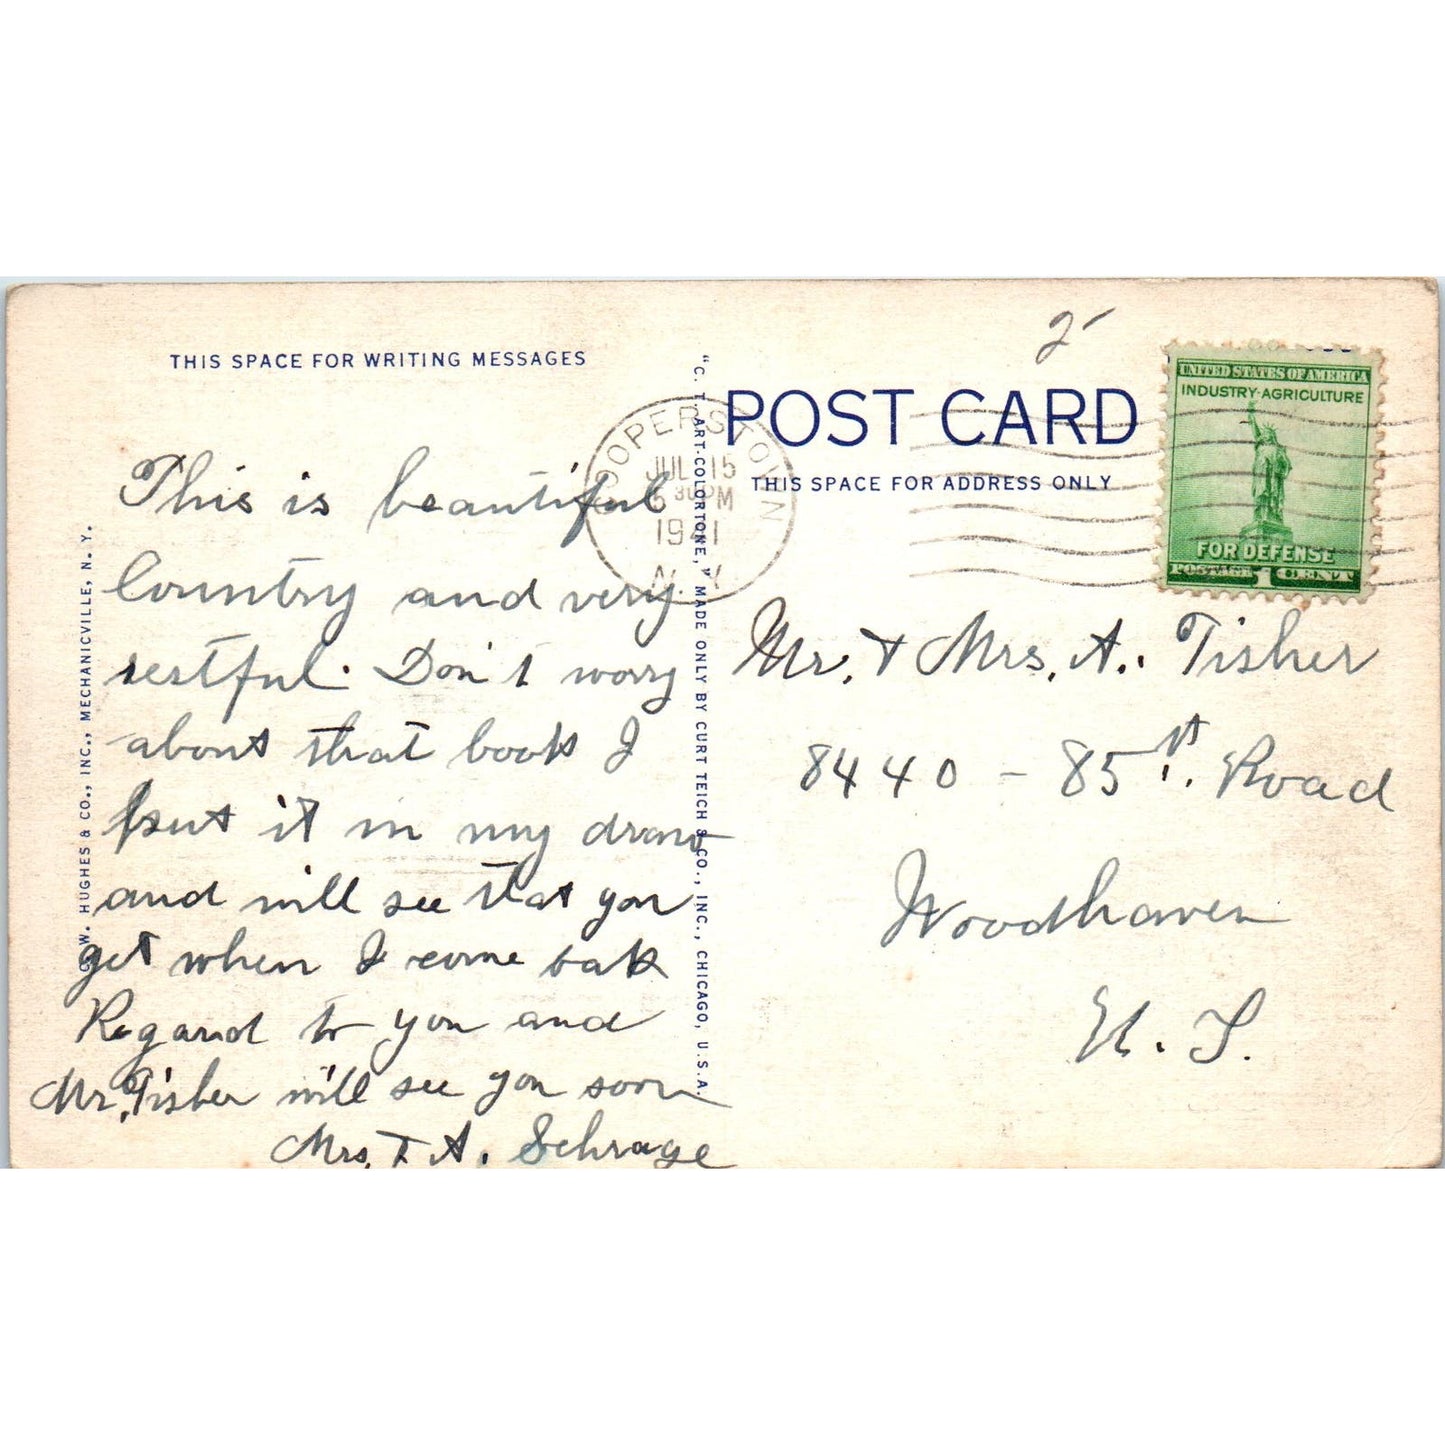 THIS SPACE FOR WRITING MESSAGES
This is beautiful
Country and very
restful. Don't worry
about that book I
put it in my draw
and will see that you
get when I come bak
Regard to you and
Mr. Tisher will see you soon
Mrs. + A. Schrage
C. W. HUGHES & CO., INC., MECHANICVILLE, N. Y.
"C. T. ART-COLORTONE," MADE ONLY BY CURT TEICH & CO., INC., CHICAGO, U.S.A.
COOPERSTOWN
JUL 15
5 30 PM
1941
N.Y.
2
POST CARD
THIS SPACE FOR ADDRESS ONLY
UNITED STATES OF AMERICA
INDUSTRY-AGRICULTURE
FOR DEFENSE
POSTAGE 1 CENT
Mr. + Mrs. A. Tisher
8440 - 85 st. Road
Woodhaven